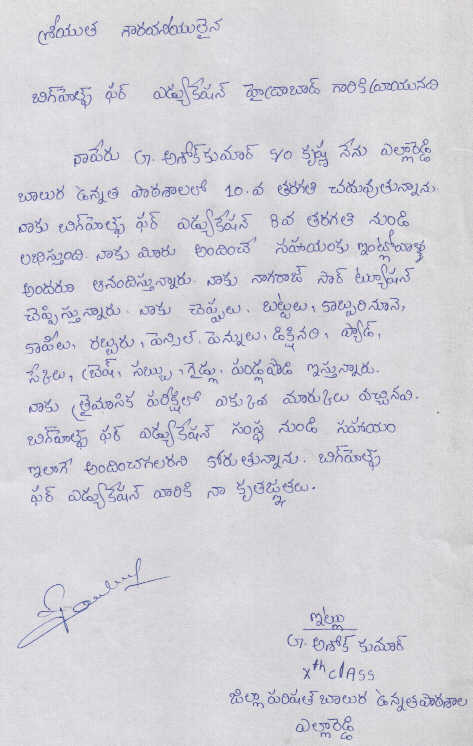 శ్రీయుత గౌరవనీయులైన
బిగ్‌హెల్ప్ ఫర్ ఎడ్యుకేషన్ హైద్రాబాద్ గారికి వ్రాయునది
నాపేరు G. అశోక్ కుమార్ S/O కృష్ణ నేను ఎల్లారెడ్డి
బాలుర ఉన్నత పాఠశాలలో 10.వ తరగతి చదువుతున్నాను.
నాకు బిగ్‌హెల్ప్ ఫర్ ఎడ్యుకేషన్ 8వ తరగతి నుండి
లభిస్తుంది. నాకు మీరు అందించే సహాయంకు ఇంట్లోవాళ్ళ
అందరూ ఆనందిస్తున్నారు. నాకు నాగరాజ్ సార్ ట్యూషన్
చెప్పిస్తున్నారు. నాకు చెప్పులు, బట్టలు, కొబ్బరినూనె,
కాపీలు, రబ్బరు, పెన్సిల్, పెన్నులు, డిక్షినరి, ప్యాడ్,
స్కేలు, బ్రెష్, సబ్బు, గైడ్లు, పండ్లపొడి ఇస్తున్నారు.
నాకు త్రైమాసిక పరీక్షలో ఎక్కువ మార్కులు వచ్చినవి.
బిగ్‌హెల్ప్ ఫర్ ఎడ్యుకేషన్ సంస్థ నుండి సహాయం
ఇలాగే అందించగలరని కోరుతున్నాను. బిగ్‌హెల్ప్
ఫర్ ఎడ్యుకేషన్ వారికి నా కృతజ్ఞతలు.
ఇట్లు
G. అశోక్ కుమార్
Xth CLASS
జిల్లా పరిషత్ బాలుర ఉన్నత పాఠశాల
ఎల్లారెడ్డి